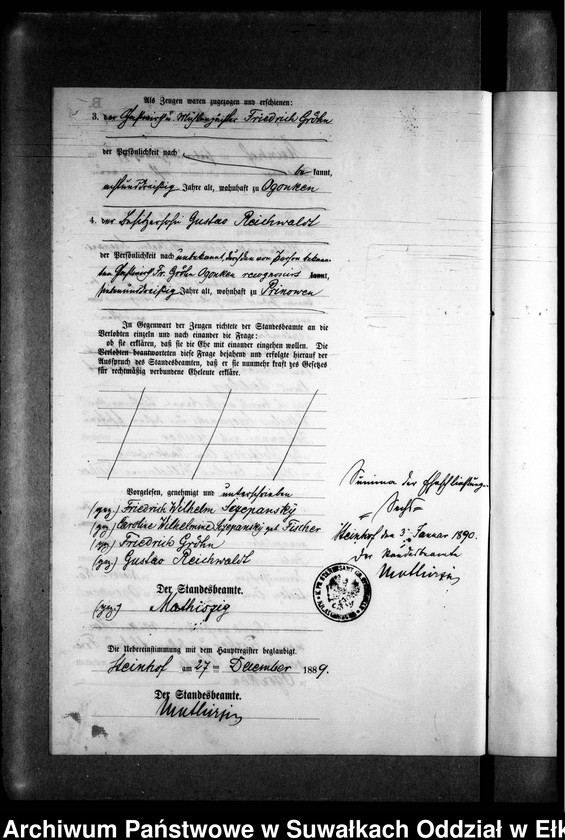 Als Zeugen waren zugezogen und erschienen:
3. der Gastwirth u. Mühlenpächter Friedrich Gröhn
der Persönlichkeit nach
be kannt,
achtunddreißig Jahre alt, wohnhaft zu Ogonken
4. der Besitzersohn Gustav Reichwaldt
der Persönlichkeit nach unbekannt, durch den von Person bekann-
ten Gastwirth Fr. Gröhn Ogonken recognoscirt kannt,
siebenunddreißig Jahre alt, wohnhaft zu Prinowen
In Gegenwart der Zeugen richtete der Standesbeamte an die
Verlobten einzeln und nach einander die Frage:
ob sie erklären, daß sie die Ehe mit einander eingehen wollen. Die
Verlobten beantworteten diese Frage bejahend und erfolgte hierauf der
Ausspruch des Standesbeamten, daß er sie nunmehr kraft des Gesetzes
für rechtmäßig verbundene Eheleute erkläre.
Vorgelesen, genehmigt und unterschrieben
(gez.) Friedrich Wilhelm Sczepansky
(gez.) Caroline Wilhelmine Sczepansky geb Fischer
(gez.) Friedrich Gröhn
(gez.) Gustav Reichwaldt
Der Standesbeamte.
(gez.) Mathiszig
Die Uebereinstimmung mit dem Hauptregister beglaubigt.
Steinhof am 27 ten December 1889.
Der Standesbeamte.
Mathiszig
Summa der Eheschließung
= Sechs =
Steinhof den 3. Januar 1890.
Der Standesbeamte
Mathiszig
Archiwum Państwowe w Suwałkach Oddział w Ełk